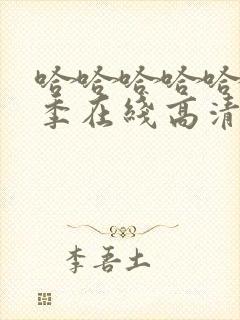 哈哈哈哈哈
季在线高清
李吾土